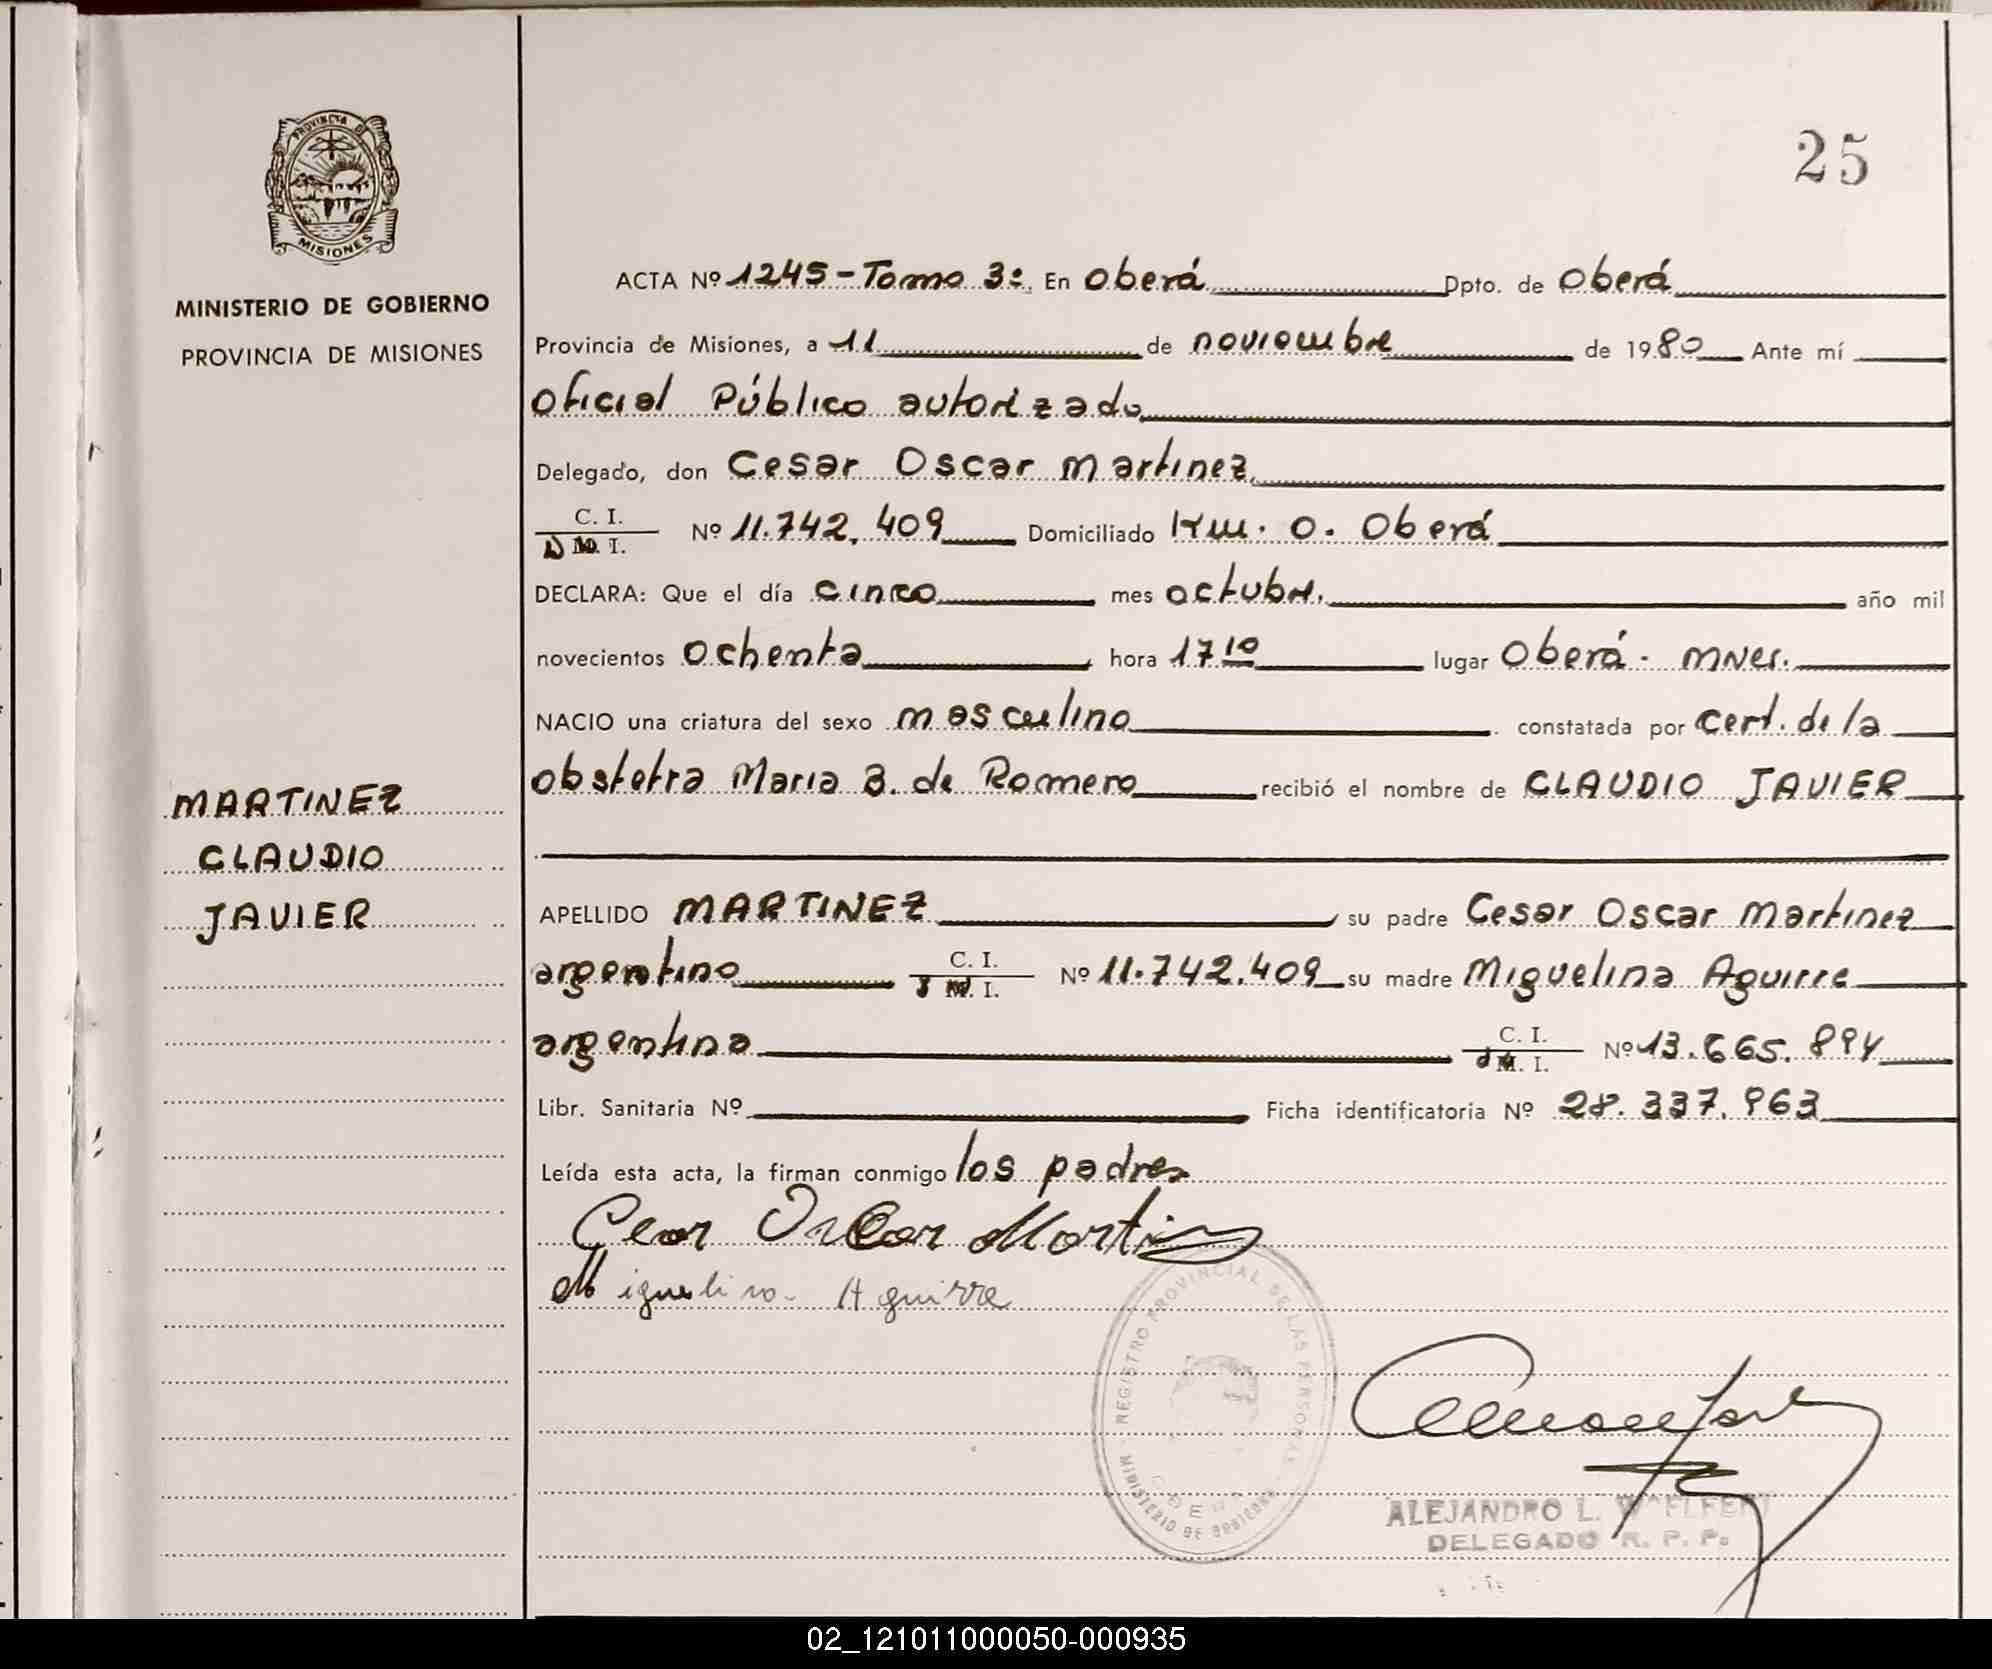 25
PROVINCIA DE
MISIONES
MINISTERIO DE GOBIERNO
PROVINCIA DE MISIONES
MARTINEZ
CLAUDIO
JAVIER
ACTA Nº 1245 - Tomo 3º. En Oberá Dpto. de Oberá
Provincia de Misiones, a 11 de noviembre de 1980 Ante mí
Oficial Público autorizado
Delegado, don Cesar Oscar Martinez
C. I.
D. N. I. Nº 11.742.409 Domiciliado Km. 0. Oberá
DECLARA: Que el día cinco mes octubre año mil
novecientos ochenta hora 17 10 lugar Oberá - Mnes.
NACIO una criatura del sexo masculino constatada por cert. de la
obstetra Maria B. de Romero recibió el nombre de CLAUDIO JAVIER
APELLIDO MARTINEZ su padre Cesar Oscar Martinez
argentino C. I. Nº 11.742.409 su madre Miguelina Aguirre
argentina C. I. Nº 13.665.894
Libr. Sanitaria Nº Ficha identificatoria Nº 28.337.963
Leída esta acta, la firman conmigo los padres
Cesar Oscar Martinez
Miguelina Aguirre
REGISTRO PROVINCIAL DE LAS PERSONAS
MINISTERIO DE GOBIERNO
ALEJANDRO L.
DELEGADO R. P. P.
02_121011000050-000935